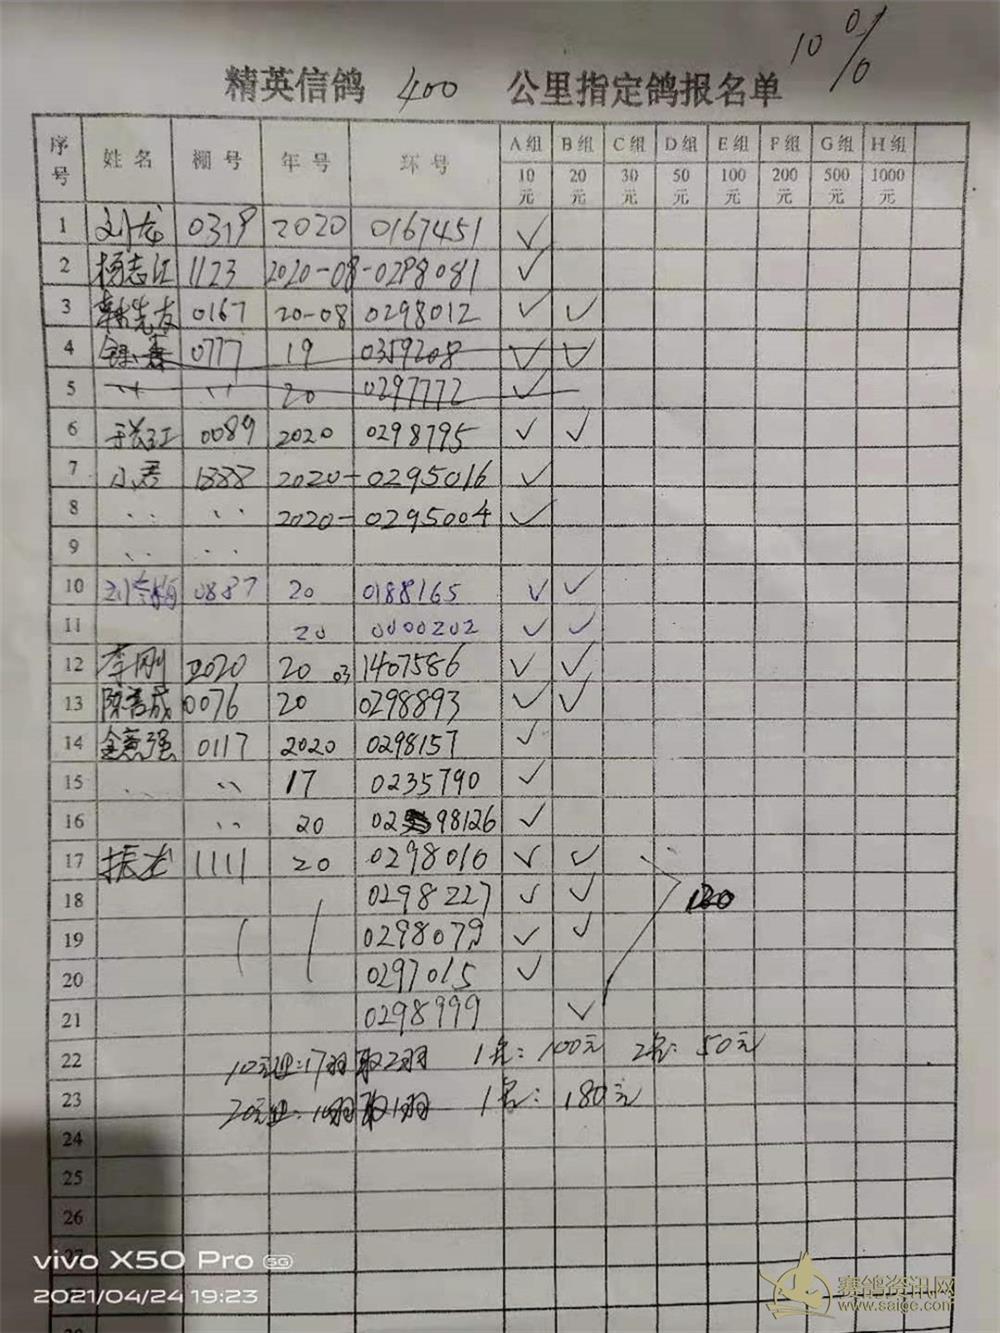 10%
精英信鸽 400 公里指定鸽报名单
序号 姓名 棚号 年号 环号 A组 B组 C组 D组 E组 F组 G组 H组
10元 20元 30元 50元 100元 200元 500元 1000元
1 刘龙 0319 2020 0167451 ✓
2 杨志江 1123 2020-08-0298081 ✓
3 韩先友 0167 20-08 0298012 ✓ ✓
4 0777 19 0359208 ✓ ✓
5 〃 〃 20 0297772 ✓
6 于长江 0089 2020 0298795 ✓ ✓
7 小君 1888 2020-0295016 ✓
8 〃 〃 2020-0295004 ✓
9 〃 〃
10 0887 20 0188165 ✓ ✓
11 20 0000202 ✓ ✓
12 李刚 2020 20 03 1407586 ✓ ✓
13 0076 20 0298893 ✓ ✓
14 0117 2020 0298157 ✓
15 〃 〃 17 0235790 ✓
16 〃 20 0298126 ✓
17 振龙 1111 20 0298016 ✓ ✓
18 0298227 ✓ ✓
19 0298079 ✓ ✓
20 0297015 ✓
21 0298999 ✓
22 10元组:17羽取2羽 1名:100元 2名:50元
23 20元组:10羽取1羽 1名:180元
24
25
26
27
vivo X50 Pro 5G
2021/04/24 19:23
赛鸽资讯网
www.saige.com